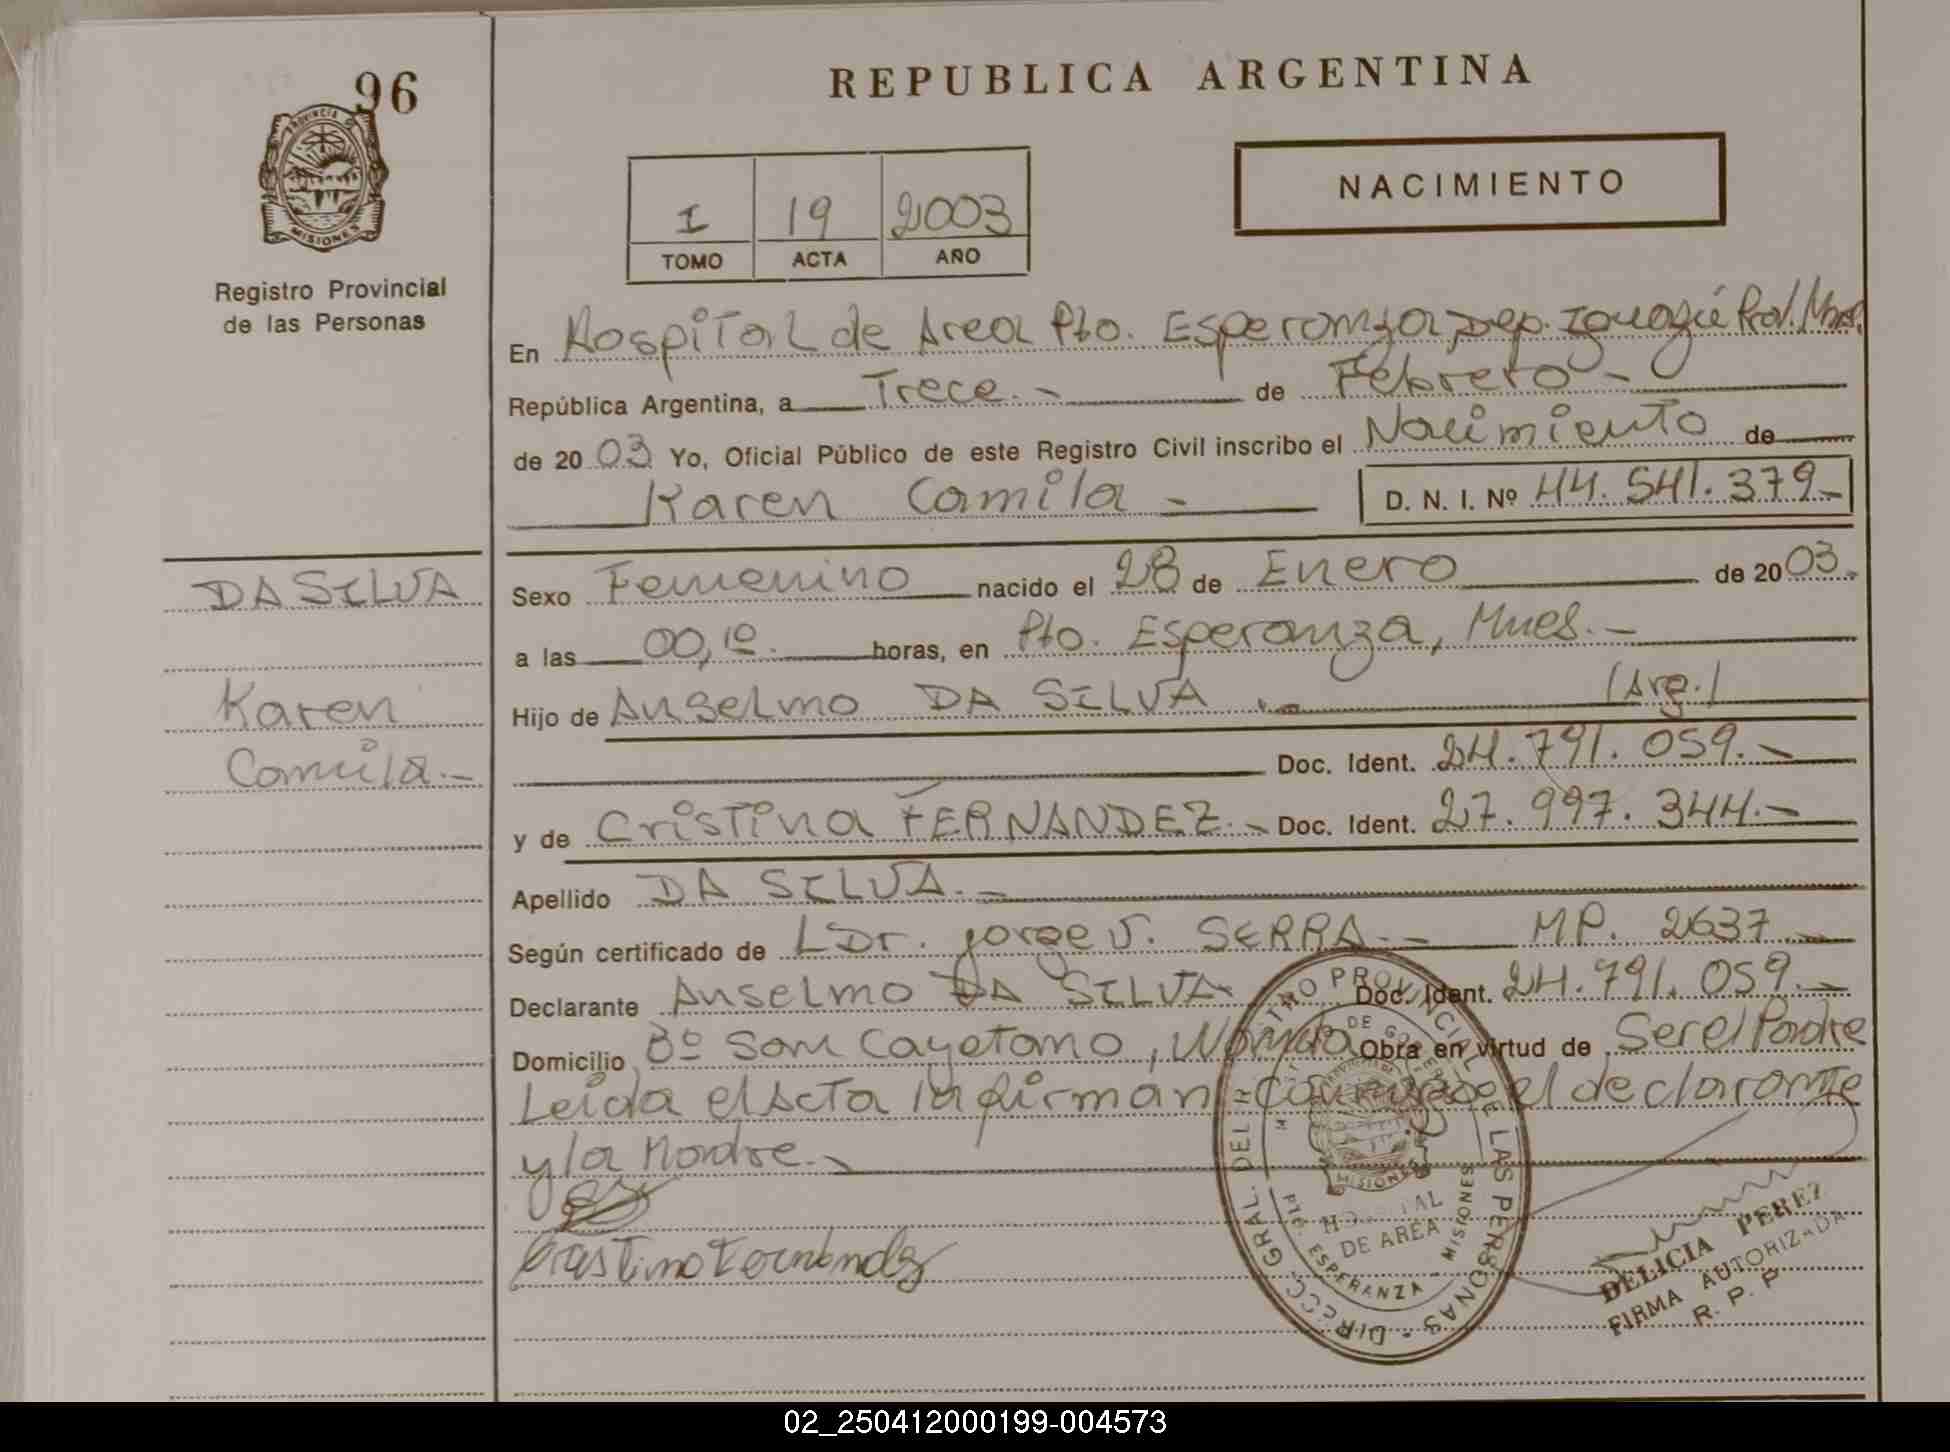 96
PROVINCIA DE
MISIONES
Registro Provincial
de las Personas
REPUBLICA ARGENTINA
NACIMIENTO
I 19 2003
TOMO ACTA AÑO
En Hospital de Area Pto. Esperanza, Dep. Iguazú Prov. Mnes.
República Argentina, a Trece.- de Febrero -
de 20 03 Yo, Oficial Público de este Registro Civil inscribo el Nacimiento de
Karen Camila - D. N. I. Nº 44.541.379-
DA SILVA
Karen
Camila.-
Sexo Femenino nacido el 28 de Enero de 20 03.
a las 00,10. horas, en Pto. Esperanza, Mnes.-
Hijo de Anselmo DA SILVA .- (Arg.)
Doc. Ident. 24.791.059.-
y de Cristina FERNANDEZ.- Doc. Ident. 27.997.344.-
Apellido DA SILVA.-
Según certificado de Dr. Jorge J. SERRA.- MP. 2637.-
Declarante Anselmo DA SILVA Doc. Ident. 24.791.059.-
Domicilio Bº San Cayetano, Wanda Obra en virtud de Ser el Padre
Leida el Acta la firman conmigo el declarante
y la Madre.-
Cristina Fernandez
DIRECC. GRAL. DEL REGISTRO PROVINCIAL DE LAS PERSONAS
MISIONES
HOSPITAL
DE AREA
PTO. ESPERANZA - MISIONES
DELICIA PEREZ
FIRMA AUTORIZADA
R. P. P
02_250412000199-004573